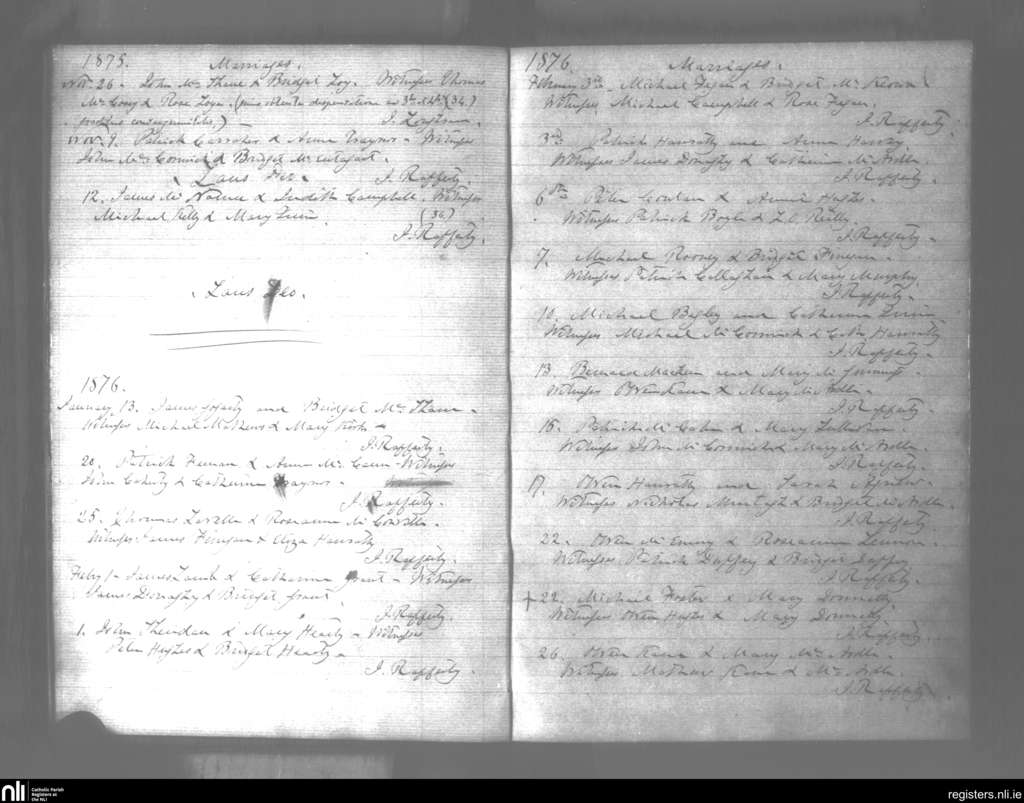 1875. Marriages.
Nov. 26 - John Mc Shane & Bridget Loy. Witnesses Thomas
Mc & Rose (prius obtenta dispensatione in 3o & 4o (34.)
gradibus consanguinitatis.) - J.
Nov. 9. Patrick & Anne Traynor - Witnesses
John Mc Cormick & Bridget Mc
Laus J. Rafferty
12. James Mc & Judith Campbell. Witnesses
Michael Kelly & Mary Quin. (36.)
J. Rafferty.
Laus Deo.
1876.
January 13. James Fogarty and Bridget Mc Shane -
Witnesses Michael Mathews & Mary -
J. Rafferty.
20. Patrick & Anne Mc Cann - Witnesses
John & Catherine Traynor -
J. Rafferty.
25. Thomas Lavelle & Roseanne Mc
Witnesses James Finegan & Eliza Hanratty
J. Rafferty.
Feby 1 - James Lamb & Catherine Grant - Witnesses
James Donaghy & Bridget Grant.
J. Rafferty
1. John Sheridan & Mary Hearty - Witnesses
Peter Hughes & Bridget Hearty -
J. Rafferty.
1876. Marriages.
February 3rd - Michael Fegan & Bridget Mc Keown
Witnesses Michael Campbell & Rose Fegan.
J. Rafferty
3rd Patrick Hanratty and Anne Harvey.
Witnesses James Donaghy & Catherine Mc Ardle.
J. Rafferty -
6th Peter & Annie Hughes -
Witnesses Patrick Boyle & Z. O. Reilly
J. Rafferty -
7. Michael Rooney & Bridget Finegan -
Witnesses Patrick Callaghan & Mary Murphy
J. Rafferty -
10. Michael Begley and Catherine Quinn
Witnesses Michael Mc Cormick & Cath Hanratty
J. Rafferty -
13. Bernard Martin and Mary Mc
Witnesses Owen & Mary Mc Ardle -
J. Rafferty -
16. Patrick Mc & Mary
Witnesses John Mc Cormick & Mary Mc Ardle -
J. Rafferty -
17. Owen Hanratty and Sarah
Witnesses Nicholas Murtagh & Bridget Mc Ardle -
J. Rafferty
22. Owen Mc & Roseanne Lennon.
Witnesses Patrick Duffy & Bridget Duffy
J. Rafferty -
+ 22. Michael & Mary Donnelly.
Witnesses Owen Hughes & Mary Donnelly
J. Rafferty
26. Owen & Mary Mc Ardle -
Witnesses Mathew & Mc Ardle.
J. Rafferty
nli Catholic Parish
Registers at
the NLI
registers.nli.ie